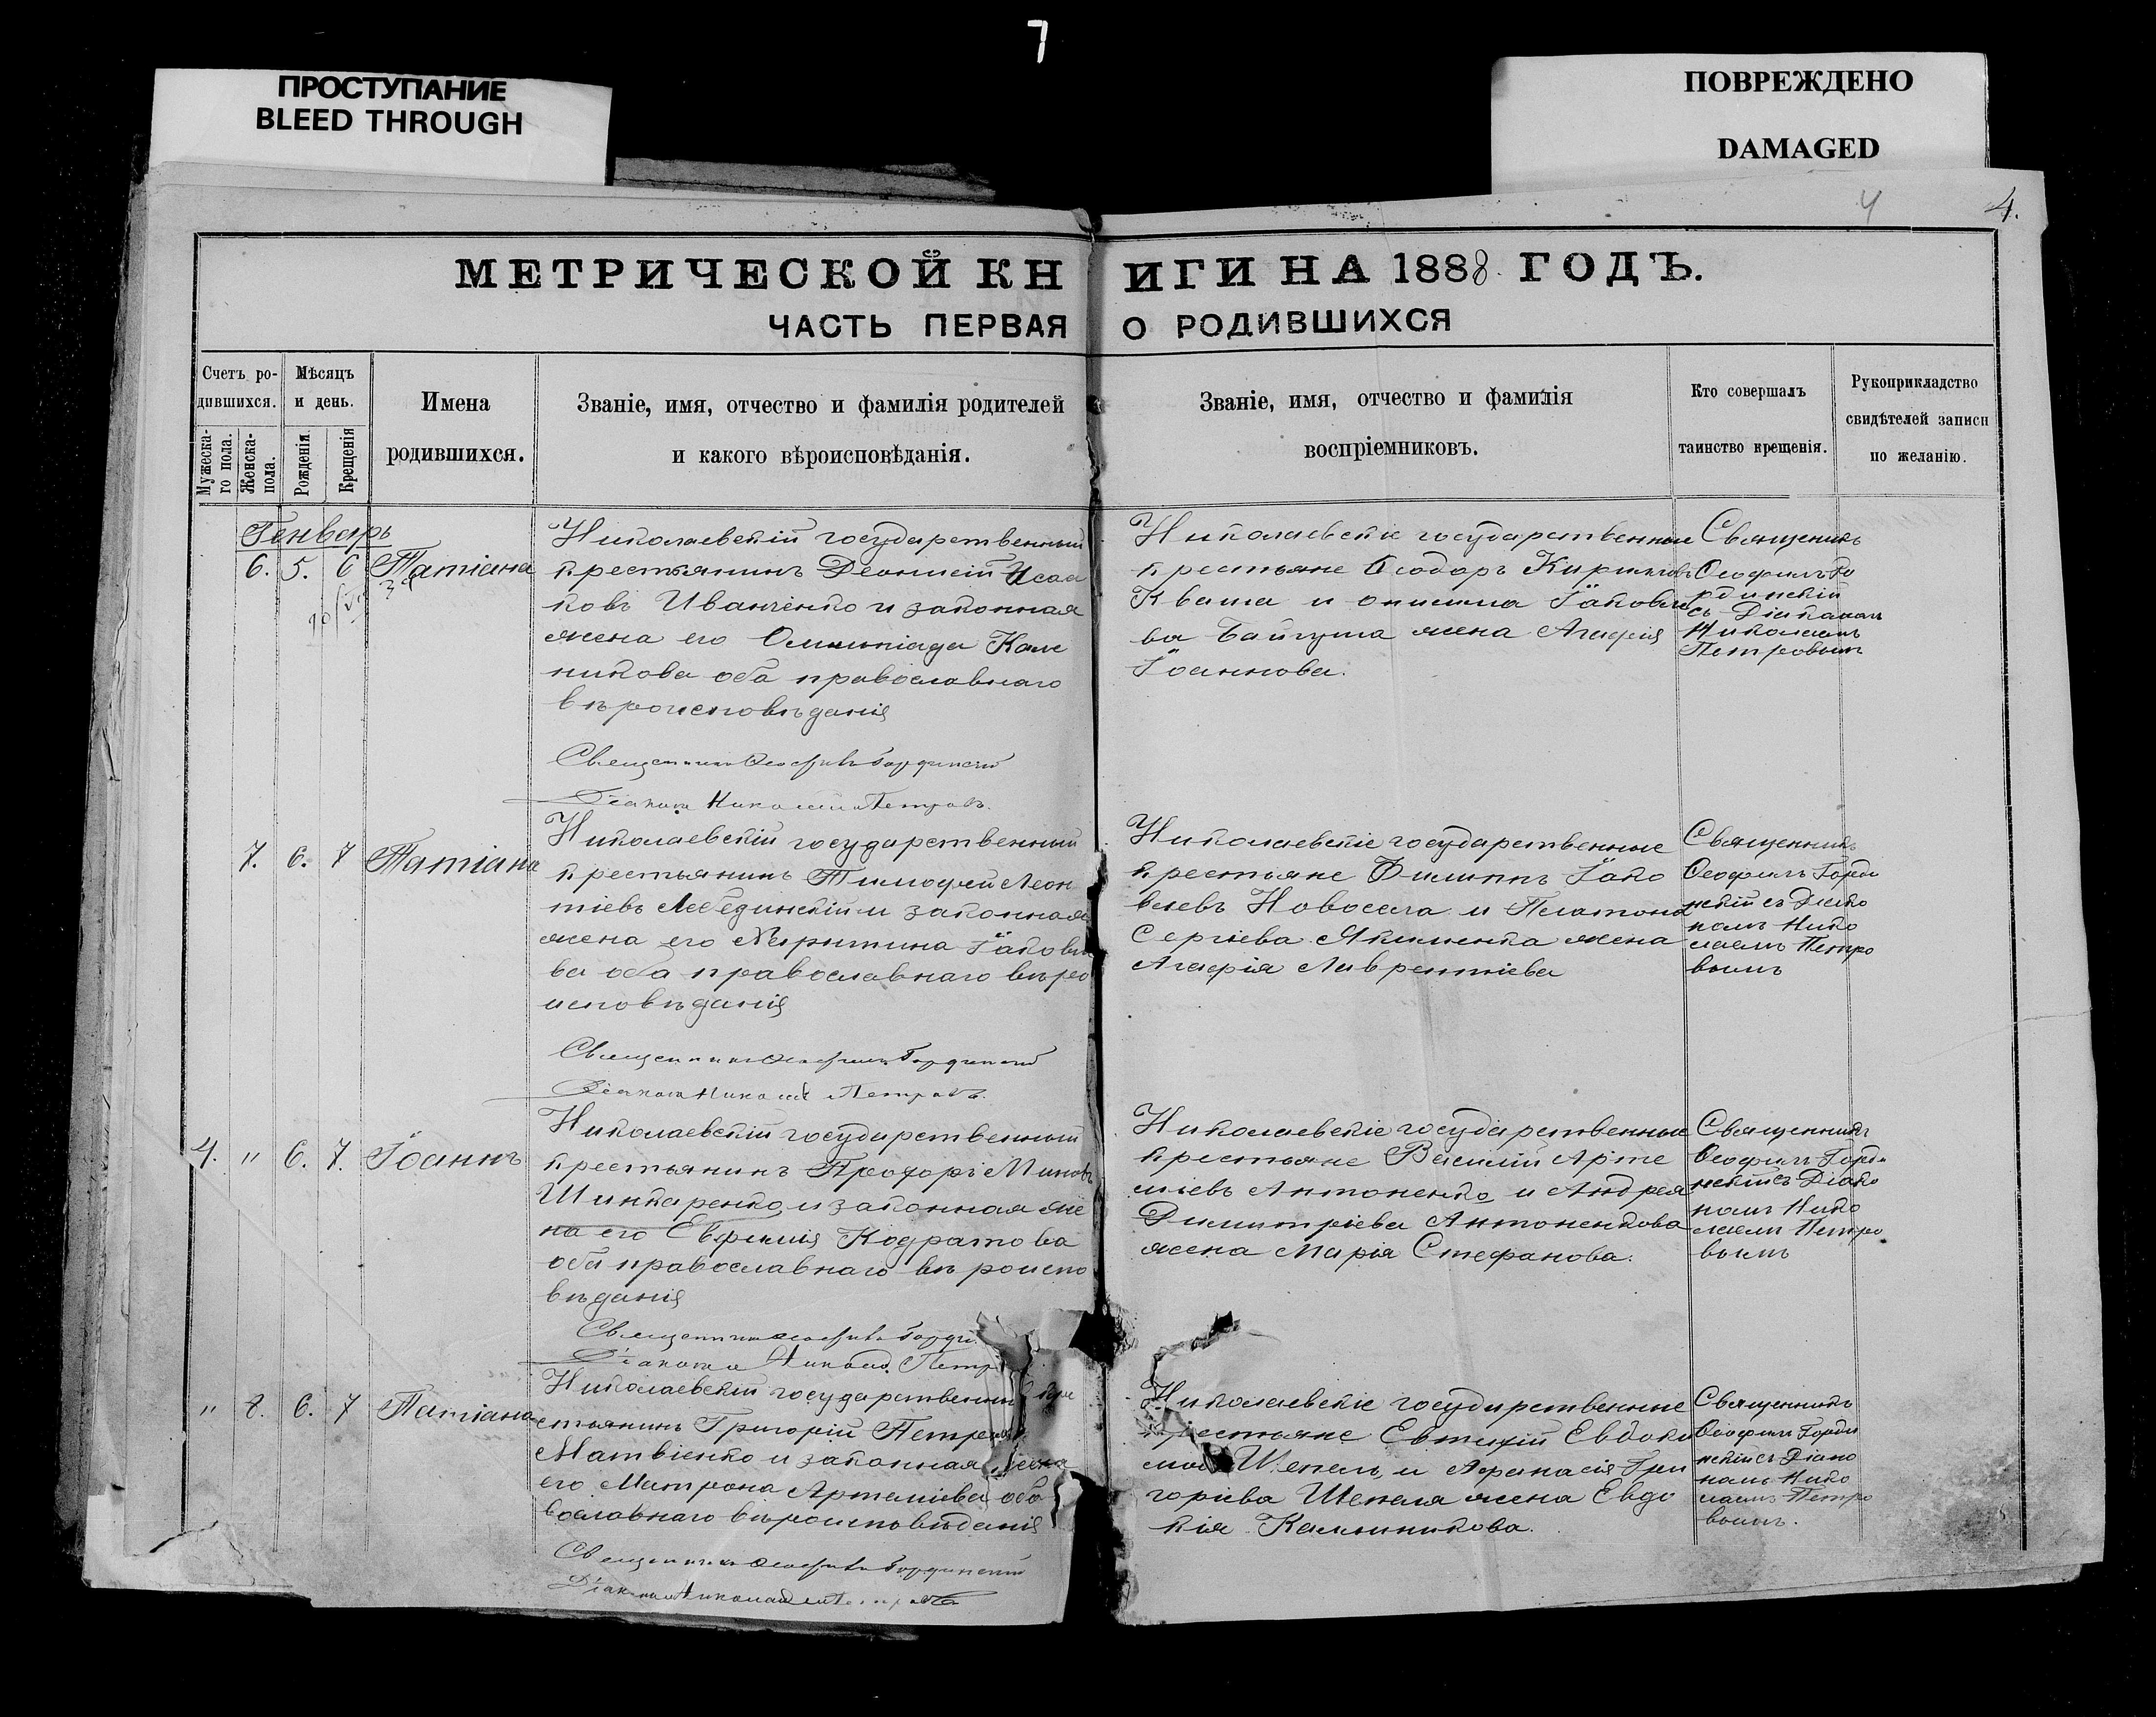 7
ПРОСТУПАНИЕ
BLEED THROUGH
ПОВРЕЖДЕНО
DAMAGED
4
4.
МЕТРИЧЕСКОЙ КНИГИ НА 1888 ГОДЪ.
ЧАСТЬ ПЕРВАЯ О РОДИВШИХСЯ
Счетъ ро-
дившихся.
Мужеска-
го пола.
Женска-
пола.
Мѣсяцъ
и день.
Рожденія.
Крещенія
Имена
родившихся.
Званіе, имя, отчество и фамилія родителей
и какого вѣроисповѣданія.
Званіе, имя, отчество и фамилія
воспріемниковъ.
Кто совершалъ
таинство крещенія.
Рукоприкладство
свидѣтелей записи
по желанію.
Генварь
6. 5. 6 Татіана
Николаевскій государственный
крестьянинъ Деонисій Исаа
ковъ Иванченко и законная
жена его Олимпіада Кали
никова оба православнаго
вѣроисповѣданія
Священникъ Ѳеофилъ Гординскій
Діаконъ Николай Петровъ.
Николаевскіе государственные
крестьяне Ѳеодоръ Кириловъ
Кваша и Іаковле
ва Байгуша жена Агафія
Іоаннова.
Священникъ
Ѳеофилъ Го
рдинскій
съ Діакономъ
Николаемъ
Петровымъ
7. 6. 7 Татіана
Николаевскій государственный
крестьянинъ Тимофей Леон
тіевъ Лебединскій и законная
жена его Харитина Іаковле
ва оба православнаго вѣро
исповѣданія
Священникъ Ѳеофилъ Гординскій
Діаконъ Николай Петровъ.
Николаевскіе государственные
крестьяне Филиппъ Іако
влевъ Новосела и Платона
Сергіева Якименка жена
Агафія Лаврентіева
Священникъ
Ѳеофилъ Горди
нскій съ Діако
номъ Нико
лаемъ Петро
вымъ
4. " 6. 7. Іоаннъ
Николаевскій государственный
крестьянинъ Прохоръ Миновъ
Шинкаренко и законная же
на его Евфимія Кодратова
оба православнаго вѣроиспо
вѣданія
Священникъ Ѳеофилъ Горди
Діаконъ Николай Петр
Николаевскіе государственные
крестьяне Василій Арте
міевъ Антоненко и Андрея
Димитріева Антоненкова
жена Марія Стефанова.
Священникъ
Ѳеофилъ Горди
нскій съ Діако
номъ Нико
лаемъ Петро
вымъ
" 8. 6. 7 Татіана
Николаевскій государственный кре
стьянинъ Григорій Петровъ
Матвіенко и законная жена
его Матрона Артеміева оба
вославнаго вѣроисповѣданія
Священникъ Ѳеофилъ Гординскій
Діаконъ Николай
Николаевскіе государственные
крестьяне Евтихій Евдоки
мовъ Шепель и Афанасія Гри
горіева Шепеля жена Евдо
кія Калиникова.
Священникъ
Ѳеофилъ Горди
нскій съ Діако
номъ Нико
лаемъ Петро
вымъ.